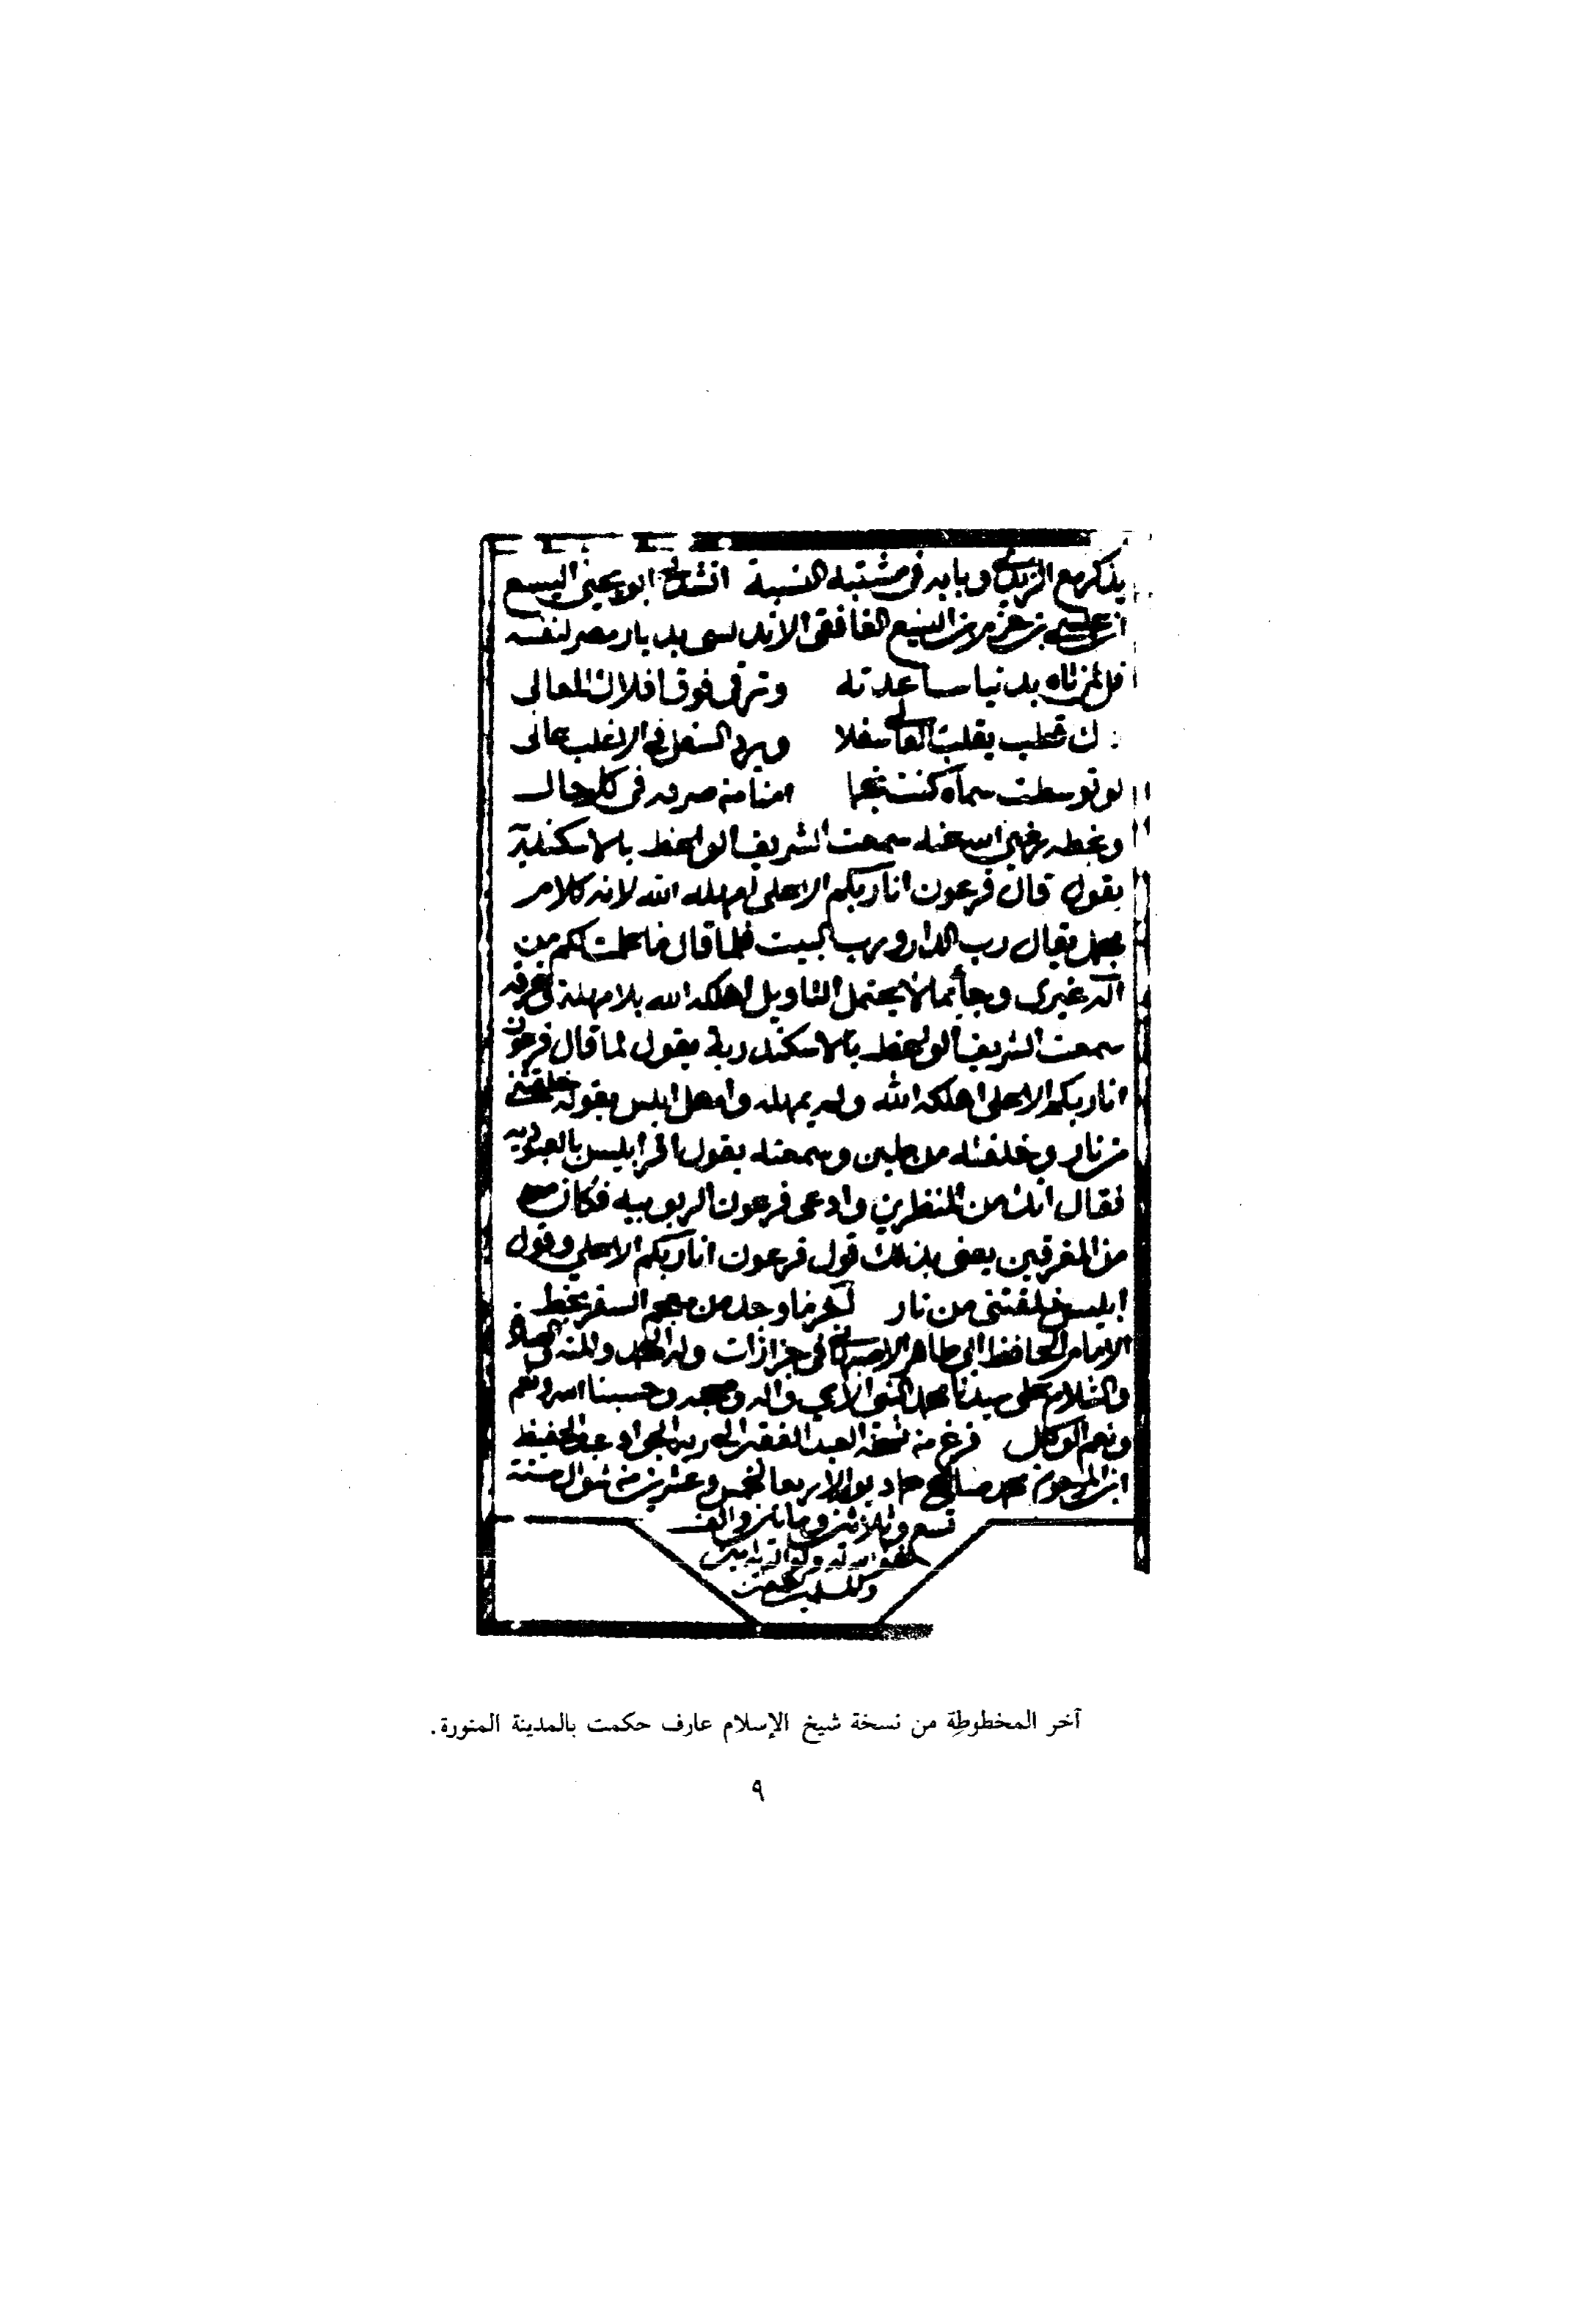 يذكر مع الزبيدي وبابه في مشتبه النسبة انشدني ابو يحيى اليسع
ابن عيسى بن حزم بن اليسع الغافقي الاندلسي بديار مصر لنفسه
قل لمن تاه بدنيا ساعدته وترقى فوق افلاك المعالي
يقلب العالي سفلا ويرد السفل في الاغلب عالي
لو توسطت سماه كنت نجما امنا من صرفه في كل حال
وبخطه سمعت الشريف الواعظ بالاسكندرية
يقول قال فرعون انا ربكم الاعلى امهله الله لانه كلام
مجمل يقال رب الدار ورب البيت فلما قال ما علمت لكم من
اله غيري وجا بما لا يحتمل التاويل اهلكه الله بلا مهلة
سمعت الشريف الواعظ بالاسكندرية يقول لما قال فرعون
انا ربكم الاعلى اهلكه الله ولم يمهله وامهل ابليس بقوله خلقتني
من نار وخلقته من طين وسمعته يقول اقر ابليس بالعبودية
فقال انك من المنظرين وادعى فرعون الربوبيه فكان
من المغرقين يعني بذلك قول فرعون انا ربكم الاعلى وقول
ابليس خلقتني من نار اخر ما وجد من معجم السفر بخط
الامام الحافظ ابي طاهر الاصبهاني في جزازات وله الحمد والمنه
والسلام على سيدنا محمد النبي الامي واله وصحبه وحسبنا الله ونعم
ونعم الوكيل فرغ منه نسخه العبد الفقير الى ربه الجواد عبد الحفيظ
ابن المرحوم محمد صالح حماد يوم الاربعا لخمس وعشرين من شوال سنة
تسع وثلاثين ومائتين والف
غفر الله له ولوالديه
وللمسلمين
آخر المخطوطة من نسخة شيخ الإسلام عارف حكمت بالمدينة المنورة.
٩